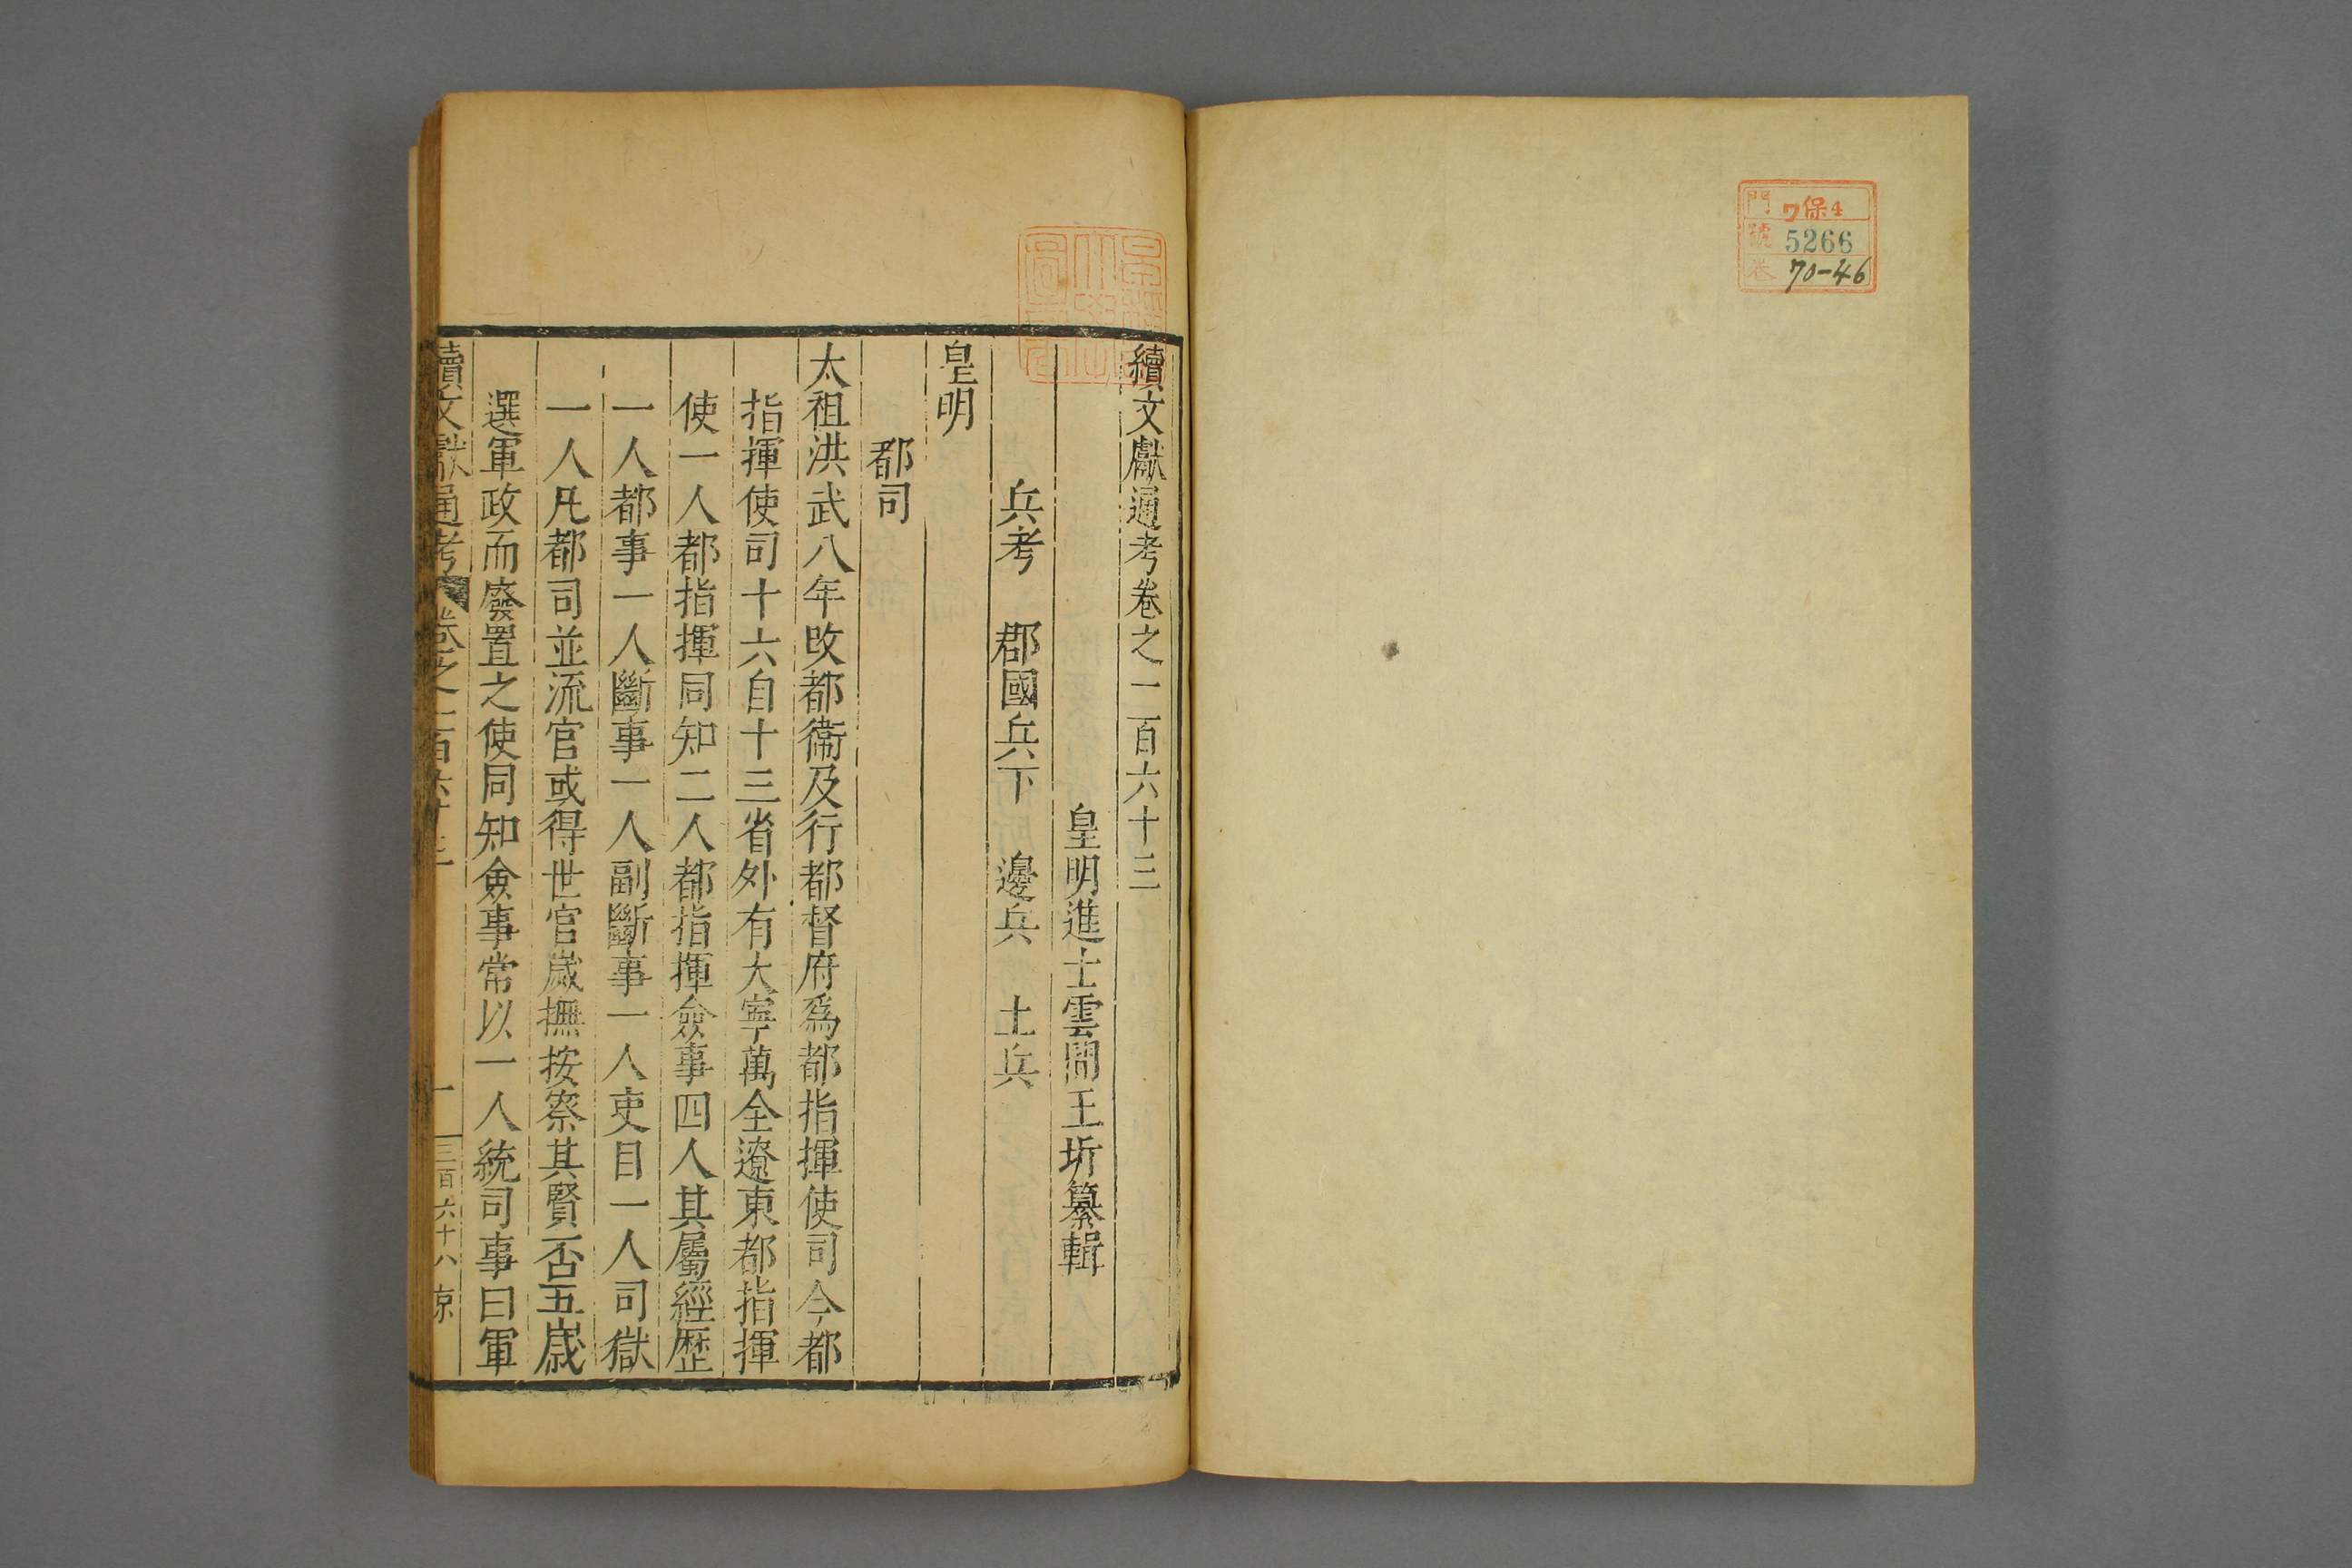 門 7保4
號 5266
卷 70-46
續文獻通考卷之一百六十三
皇明進士雲間王圻纂輯
兵考 郡國兵下 邊兵 土兵
皇明
都司
太祖洪武八年改都衞及行都督府爲都指揮使司今都
指揮使司十六自十三省外有大寧萬全遼東都指揮
使一人都指揮同知二人都指揮僉事四人其屬經歷
一人都事一人斷事一人副斷事一人吏目一人司獄
一人凡都司並流官或得世官歲撫按察其賢否五歲
選軍政而廢置之使同知僉事常以一人統司事曰軍
續文獻通考 卷之一百六十三 一 三百六十八